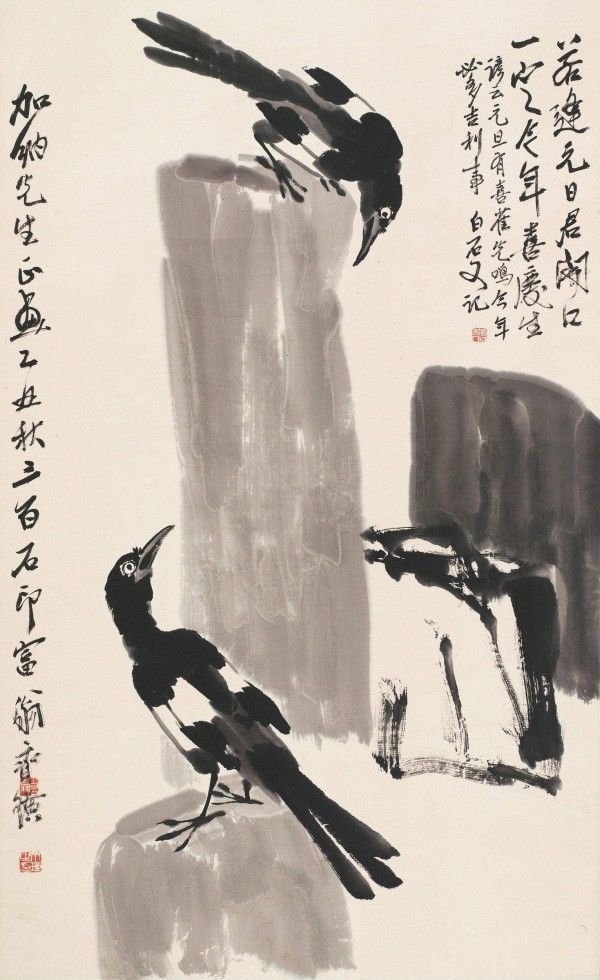 若逢元日君開口
一定今年喜慶生
諺云元旦有喜雀先鳴今年
必多吉利事 白石又記
加納先生正畫乙丑秋三百石印富翁齊璜